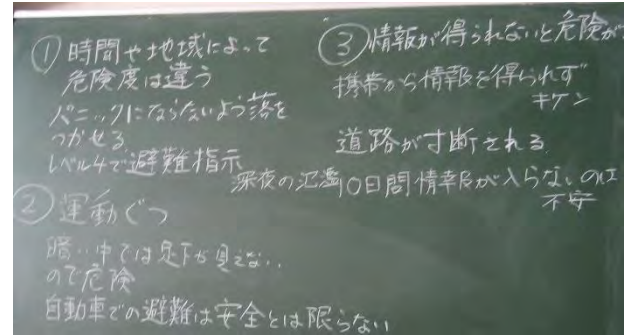 ① 時間や地域によって
危険度は違う
パニックにならないよう落を
つかせる
レベル4で避難指示
② 運動ぐつ
暗い中では足下が見えない
ので危険
自動車での避難は安全とは限らない
③ 情報が得られないと危険が
携帯から情報を得られず
キケン
道路が寸断される
深夜の氾濫
10日間情報が入らないのは
不安